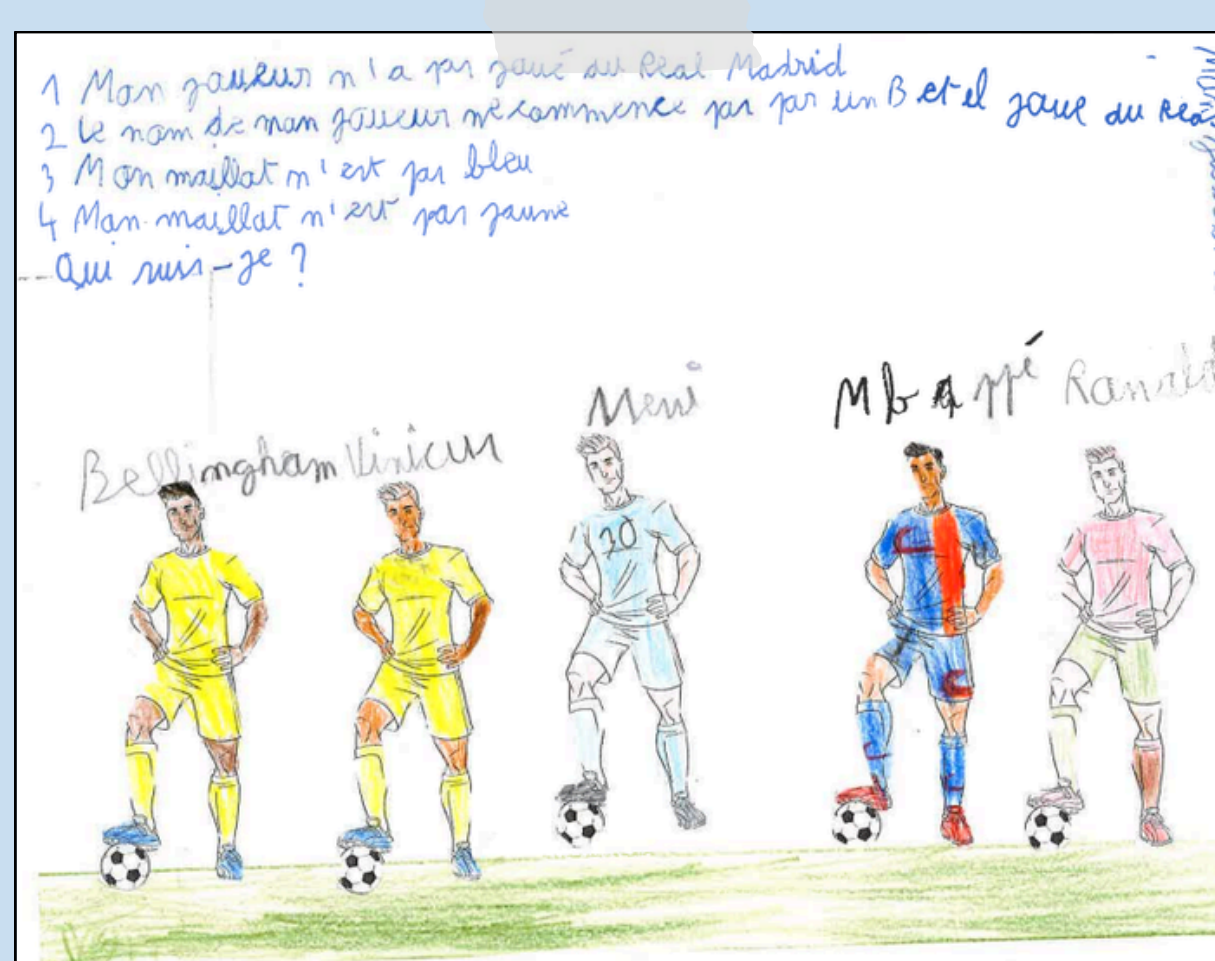 1 Mon joueur n'a pas joué au Real Madrid
2 Le nom de mon joueur ne commence pas par un B et il joue au Real
3 Mon maillot n'est pas bleu
4 Mon maillot n'est pas jaune
Qui suis-je ?
Bellingham Vinicus Messi Mbappé Ronald
30